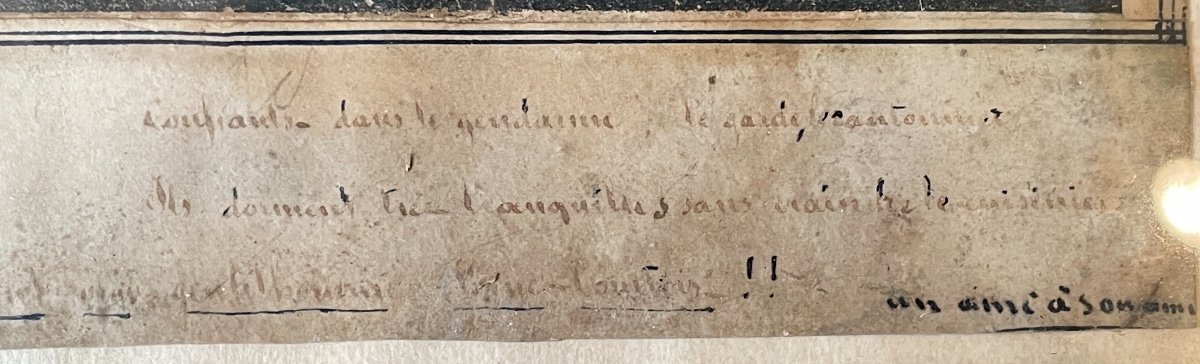 Confiants dans le gendarme, le garde, le cantonnier
Ils dorment très tranquilles sans craindre le cuisinier
gentilhomme !!
un aimé à son ami